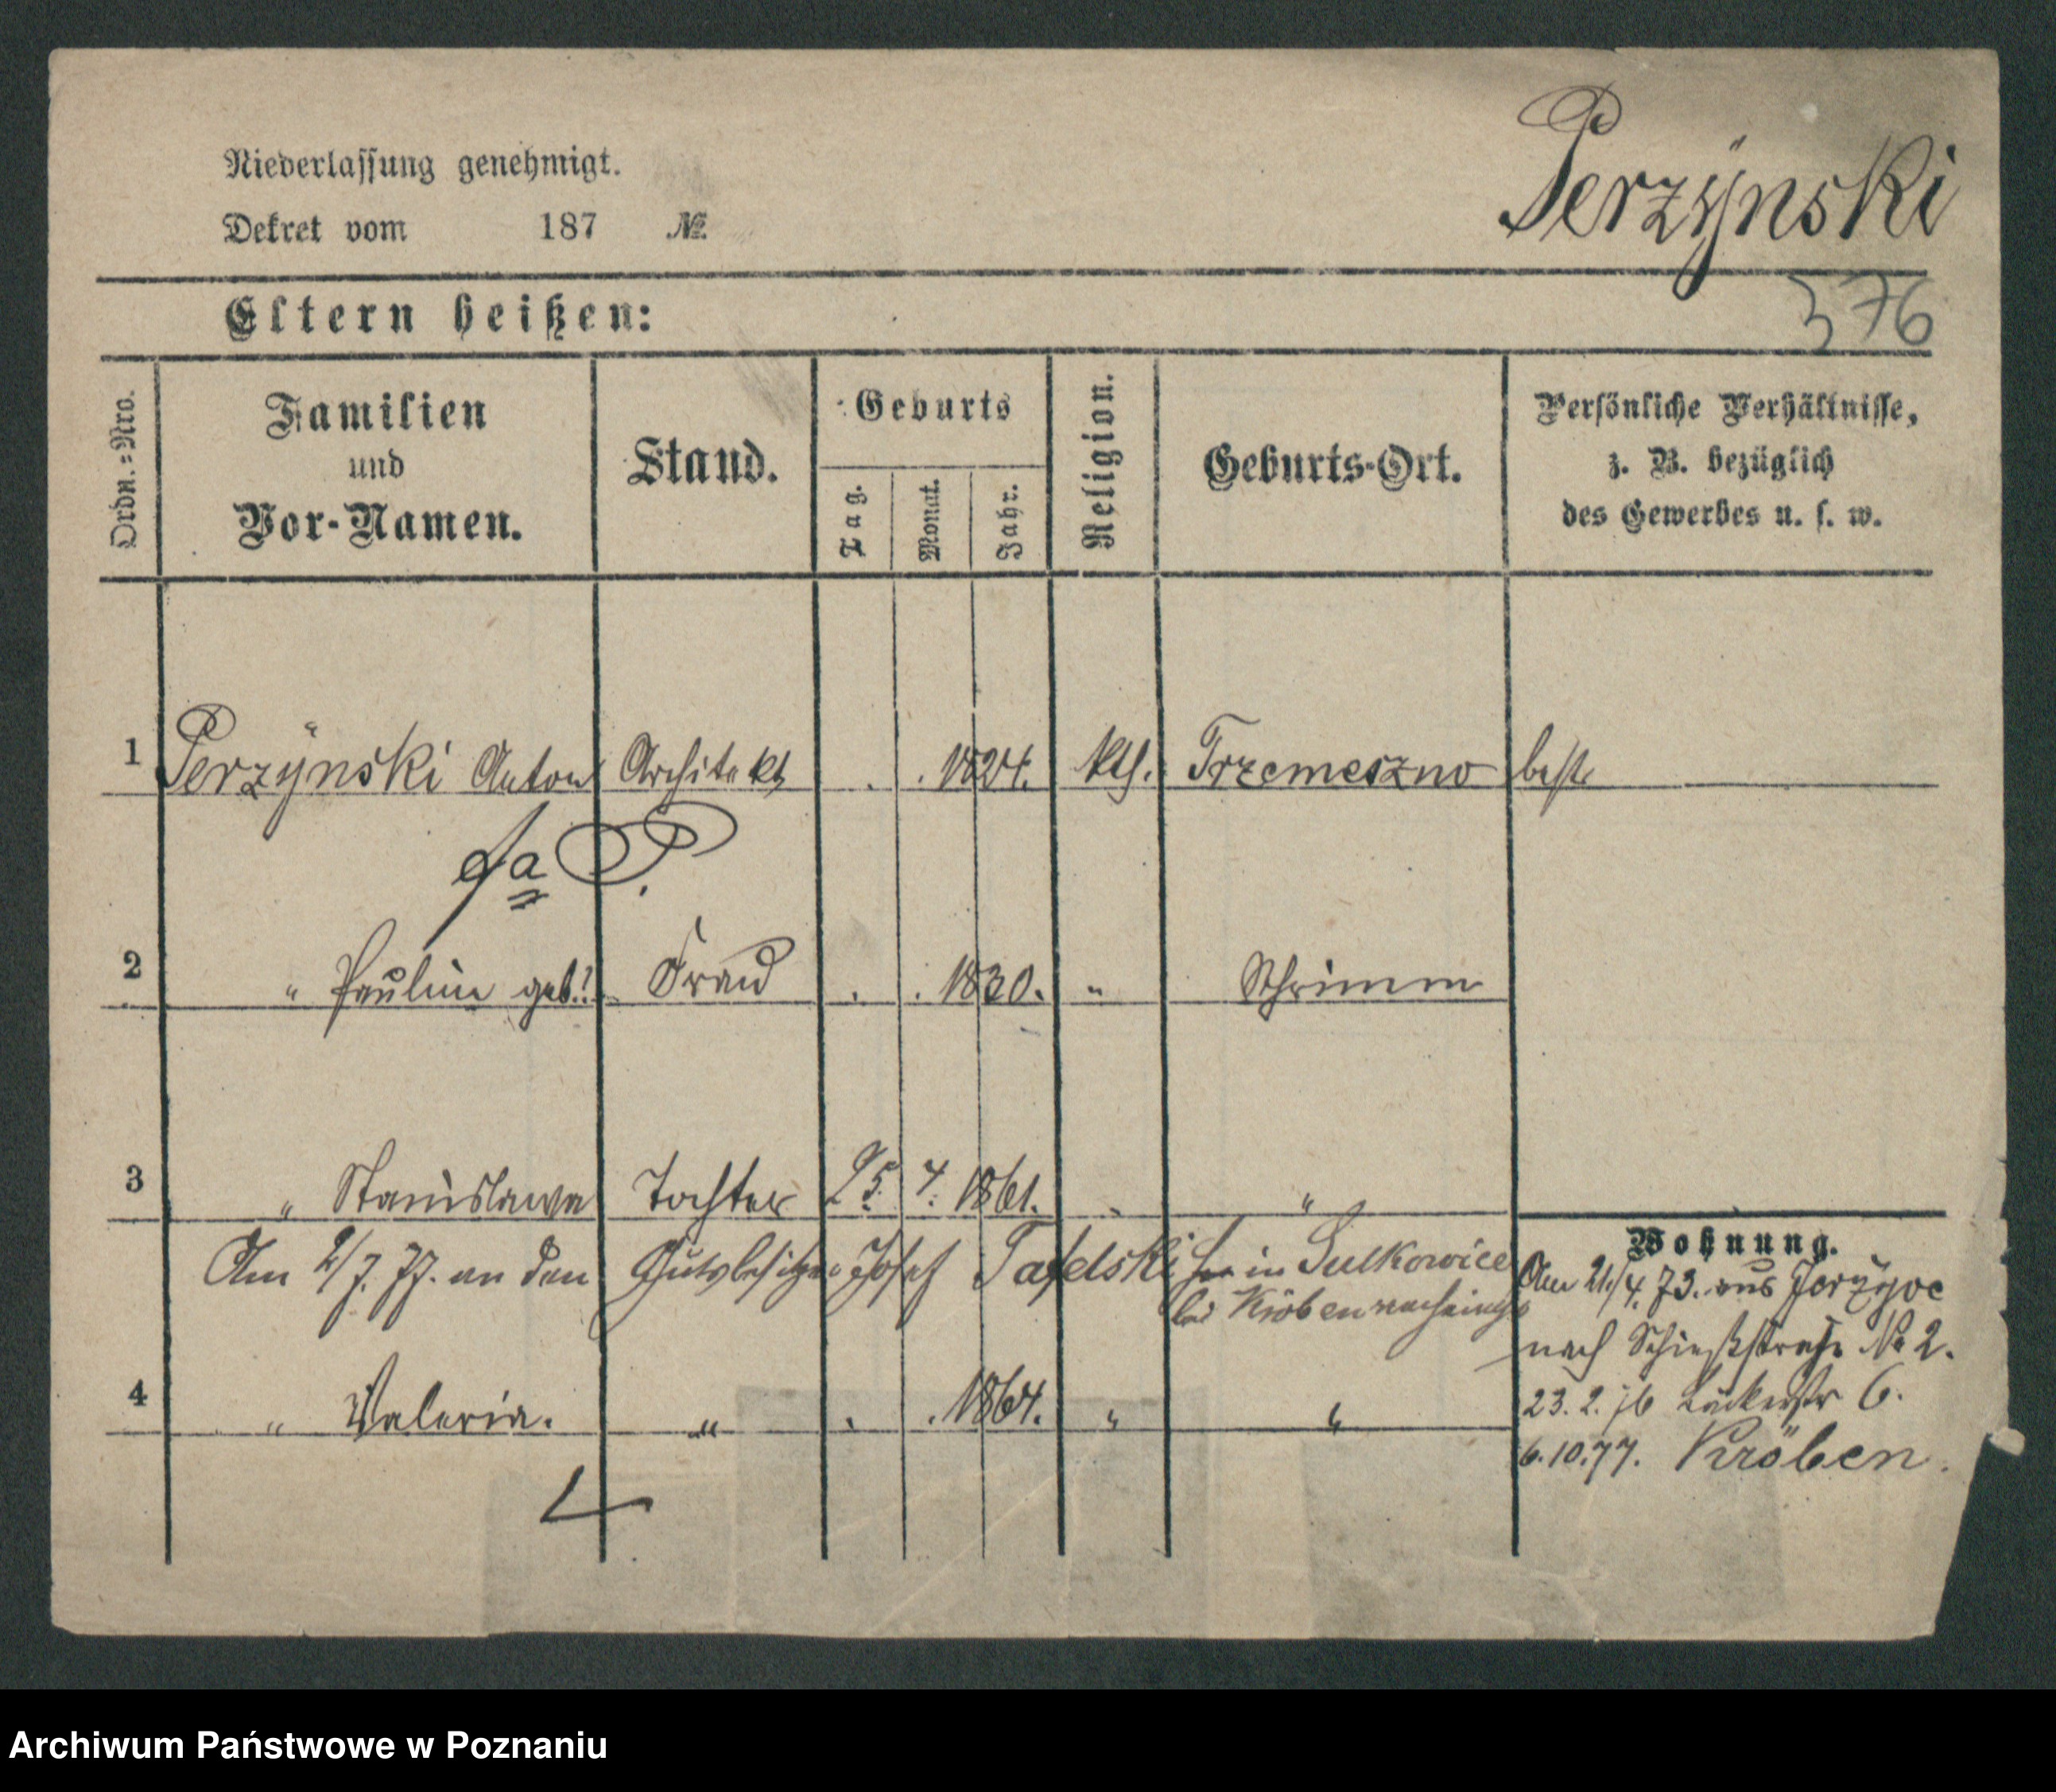 Perzÿnski
Niederlassung genehmigt.
Dekret vom 187 №
376
Eltern heißen:
Ordn.=Nro.
Familien
und
Vor-Namen.
Stand.
Geburts
Tag.
Monat.
Jahr.
Religion.
Geburts-Ort.
Persönliche Verhältnisse,
z. B. bezüglich
des Gewerbes u. s. w.
1 Perzÿnski Anton Architekt . . 1824. kth. Trzemeszno
2 " Pauline geb.? Frau . . 1830. " Schrimm
3 " Stanislawa Tochter 25. 4. 1861. " "
Am 2/7. 77. an den Gutsbesitzer Josef Tafelski in Sulkowice
bei Kröben
4 " Valeria. " . . 1864. " "
4
Wohnung.
Am 21/4. 73. aus Jerzÿce
nach Schießstraße No 2.
23. 2. 76 6.
6.10.77. Kröben.
Archiwum Państwowe w Poznaniu